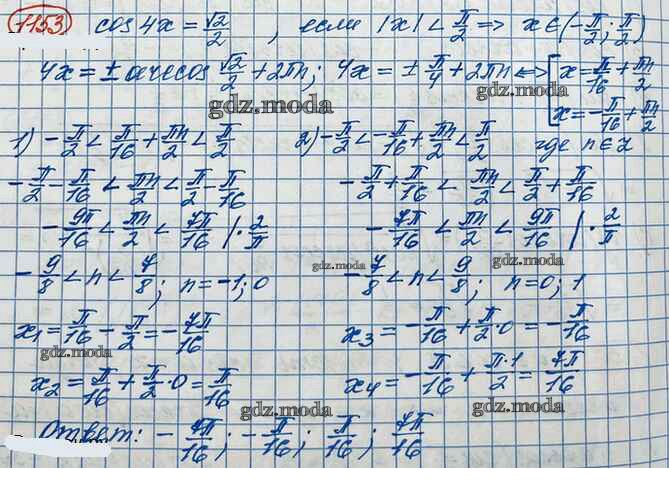 1153) cos 4x = √2/2, если |x| < π/2 => x ∈ (-π/2; π/2)
4x = ± arccos √2/2 + 2πn; 4x = ± π/4 + 2πn <=> [x = π/16 + πn/2
x = -π/16 + πn/2
gdz.moda
gdz.moda
1) -π/2 < π/16 + πn/2 < π/2 2) -π/2 < -π/16 + πn/2 < π/2 где n ∈ Z
-π/2 - π/16 < πn/2 < π/2 - π/16 -π/2 + π/16 < πn/2 < π/2 + π/16
-9π/16 < πn/2 < 7π/16 | · 2/π -7π/16 < πn/2 < 9π/16 | · 2/π
gdz.moda
gdz.moda
-9/8 < n < 7/8; n = -1; 0 -7/8 < n < 9/8; n = 0; 1
x₁ = π/16 - π/2 = -7π/16 x₃ = -π/16 + π/2 · 0 = -π/16
gdz.moda
x₂ = π/16 + π/2 · 0 = π/16 x₄ = -π/16 + π·1/2 = 7π/16
gdz.moda
gdz.moda
Ответ: -7π/16; -π/16; π/16; 7π/16